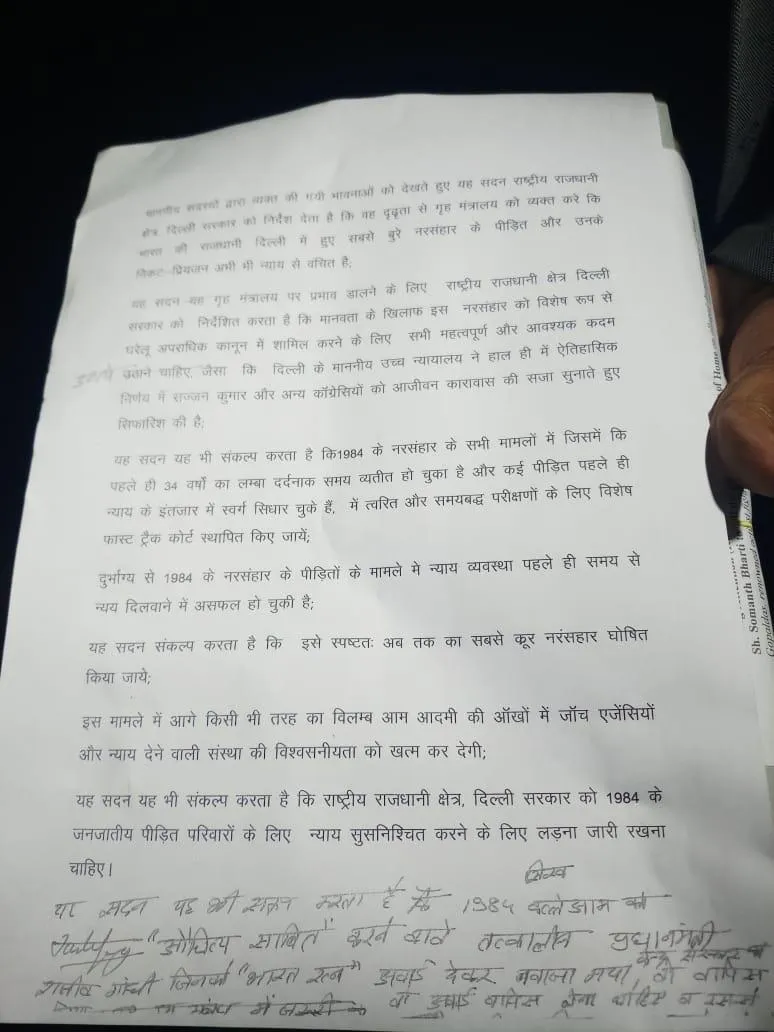 माननीय सदस्यों द्वारा व्यक्त की गयी भावनाओं को देखते हुए यह सदन राष्ट्रीय राजधानी
क्षेत्र दिल्ली सरकार को निर्देश देता है कि वह दृढ़ता से गृह मंत्रालय को व्यक्त करे कि
भारत की राजधानी दिल्ली में हुए सबसे बुरे नरसंहार के पीड़ित और उनके
निकट प्रियजन अभी भी न्याय से वंचित है;
यह सदन यह गृह मंत्रालय पर प्रभाव डालने के लिए राष्ट्रीय राजधानी क्षेत्र दिल्ली
सरकार को निर्देशित करता है कि मानवता के खिलाफ इस नरसंहार को विशेष रूप से
घरेलू अपराधिक कानून में शामिल करने के लिए सभी महत्वपूर्ण और आवश्यक कदम
उठाने चाहिए, जैसा कि दिल्ली के माननीय उच्च न्यायालय ने हाल ही में ऐतिहासिक
निर्णय में सज्जन कुमार और अन्य कॉंग्रेसियों को आजीवन कारावास की सजा सुनाते हुए
सिफारिश की है;
यह सदन यह भी संकल्प करता है कि1984 के नरसंहार के सभी मामलों में जिसमें कि
पहले ही 34 वर्षो का लम्बा दर्दनाक समय व्यतीत हो चुका है और कई पीड़ित पहले ही
न्याय के इंतजार में स्वर्ग सिधार चुके हैं, में त्वरित और समयबद्ध परीक्षणों के लिए विशेष
फास्ट ट्रैक कोर्ट स्थापित किए जायें;
दुर्भाग्य से 1984 के नरसंहार के पीड़ितों के मामले मे न्याय व्यवस्था पहले ही समय से
न्यय दिलवाने में असफल हो चुकी है;
यह सदन संकल्प करता है कि इसे स्पष्टतः अब तक का सबसे कूर नरंसहार घोषित
किया जाये;
इस मामले में आगे किसी भी तरह का विलम्ब आम आदमी की ऑखों में जॉच एजेंसियों
और न्याय देने वाली संस्था की विश्वसनीयता को खत्म कर देगी;
यह सदन यह भी संकल्प करता है कि राष्ट्रीय राजधानी क्षेत्र, दिल्ली सरकार को 1984 के
जनजातीय पीड़ित परिवारों के लिए न्याय सुसनिश्चित करने के लिए लड़ना जारी रखना
चाहिए।
सिख
सदन यह भी करता है कि 1984 कत्लेआम को
"औचित्य साबित" करने वाले तत्कालीन प्रधानमंत्री
केन्द्र सरकार
राजीव गांधी जिनको "भारत रत्न" अवार्ड देकर नवाजा गया, वापिस
अवार्ड वापिस लेना चाहिए व
of Home
Sh. Somanth Bharti
Gopaldas, renowned